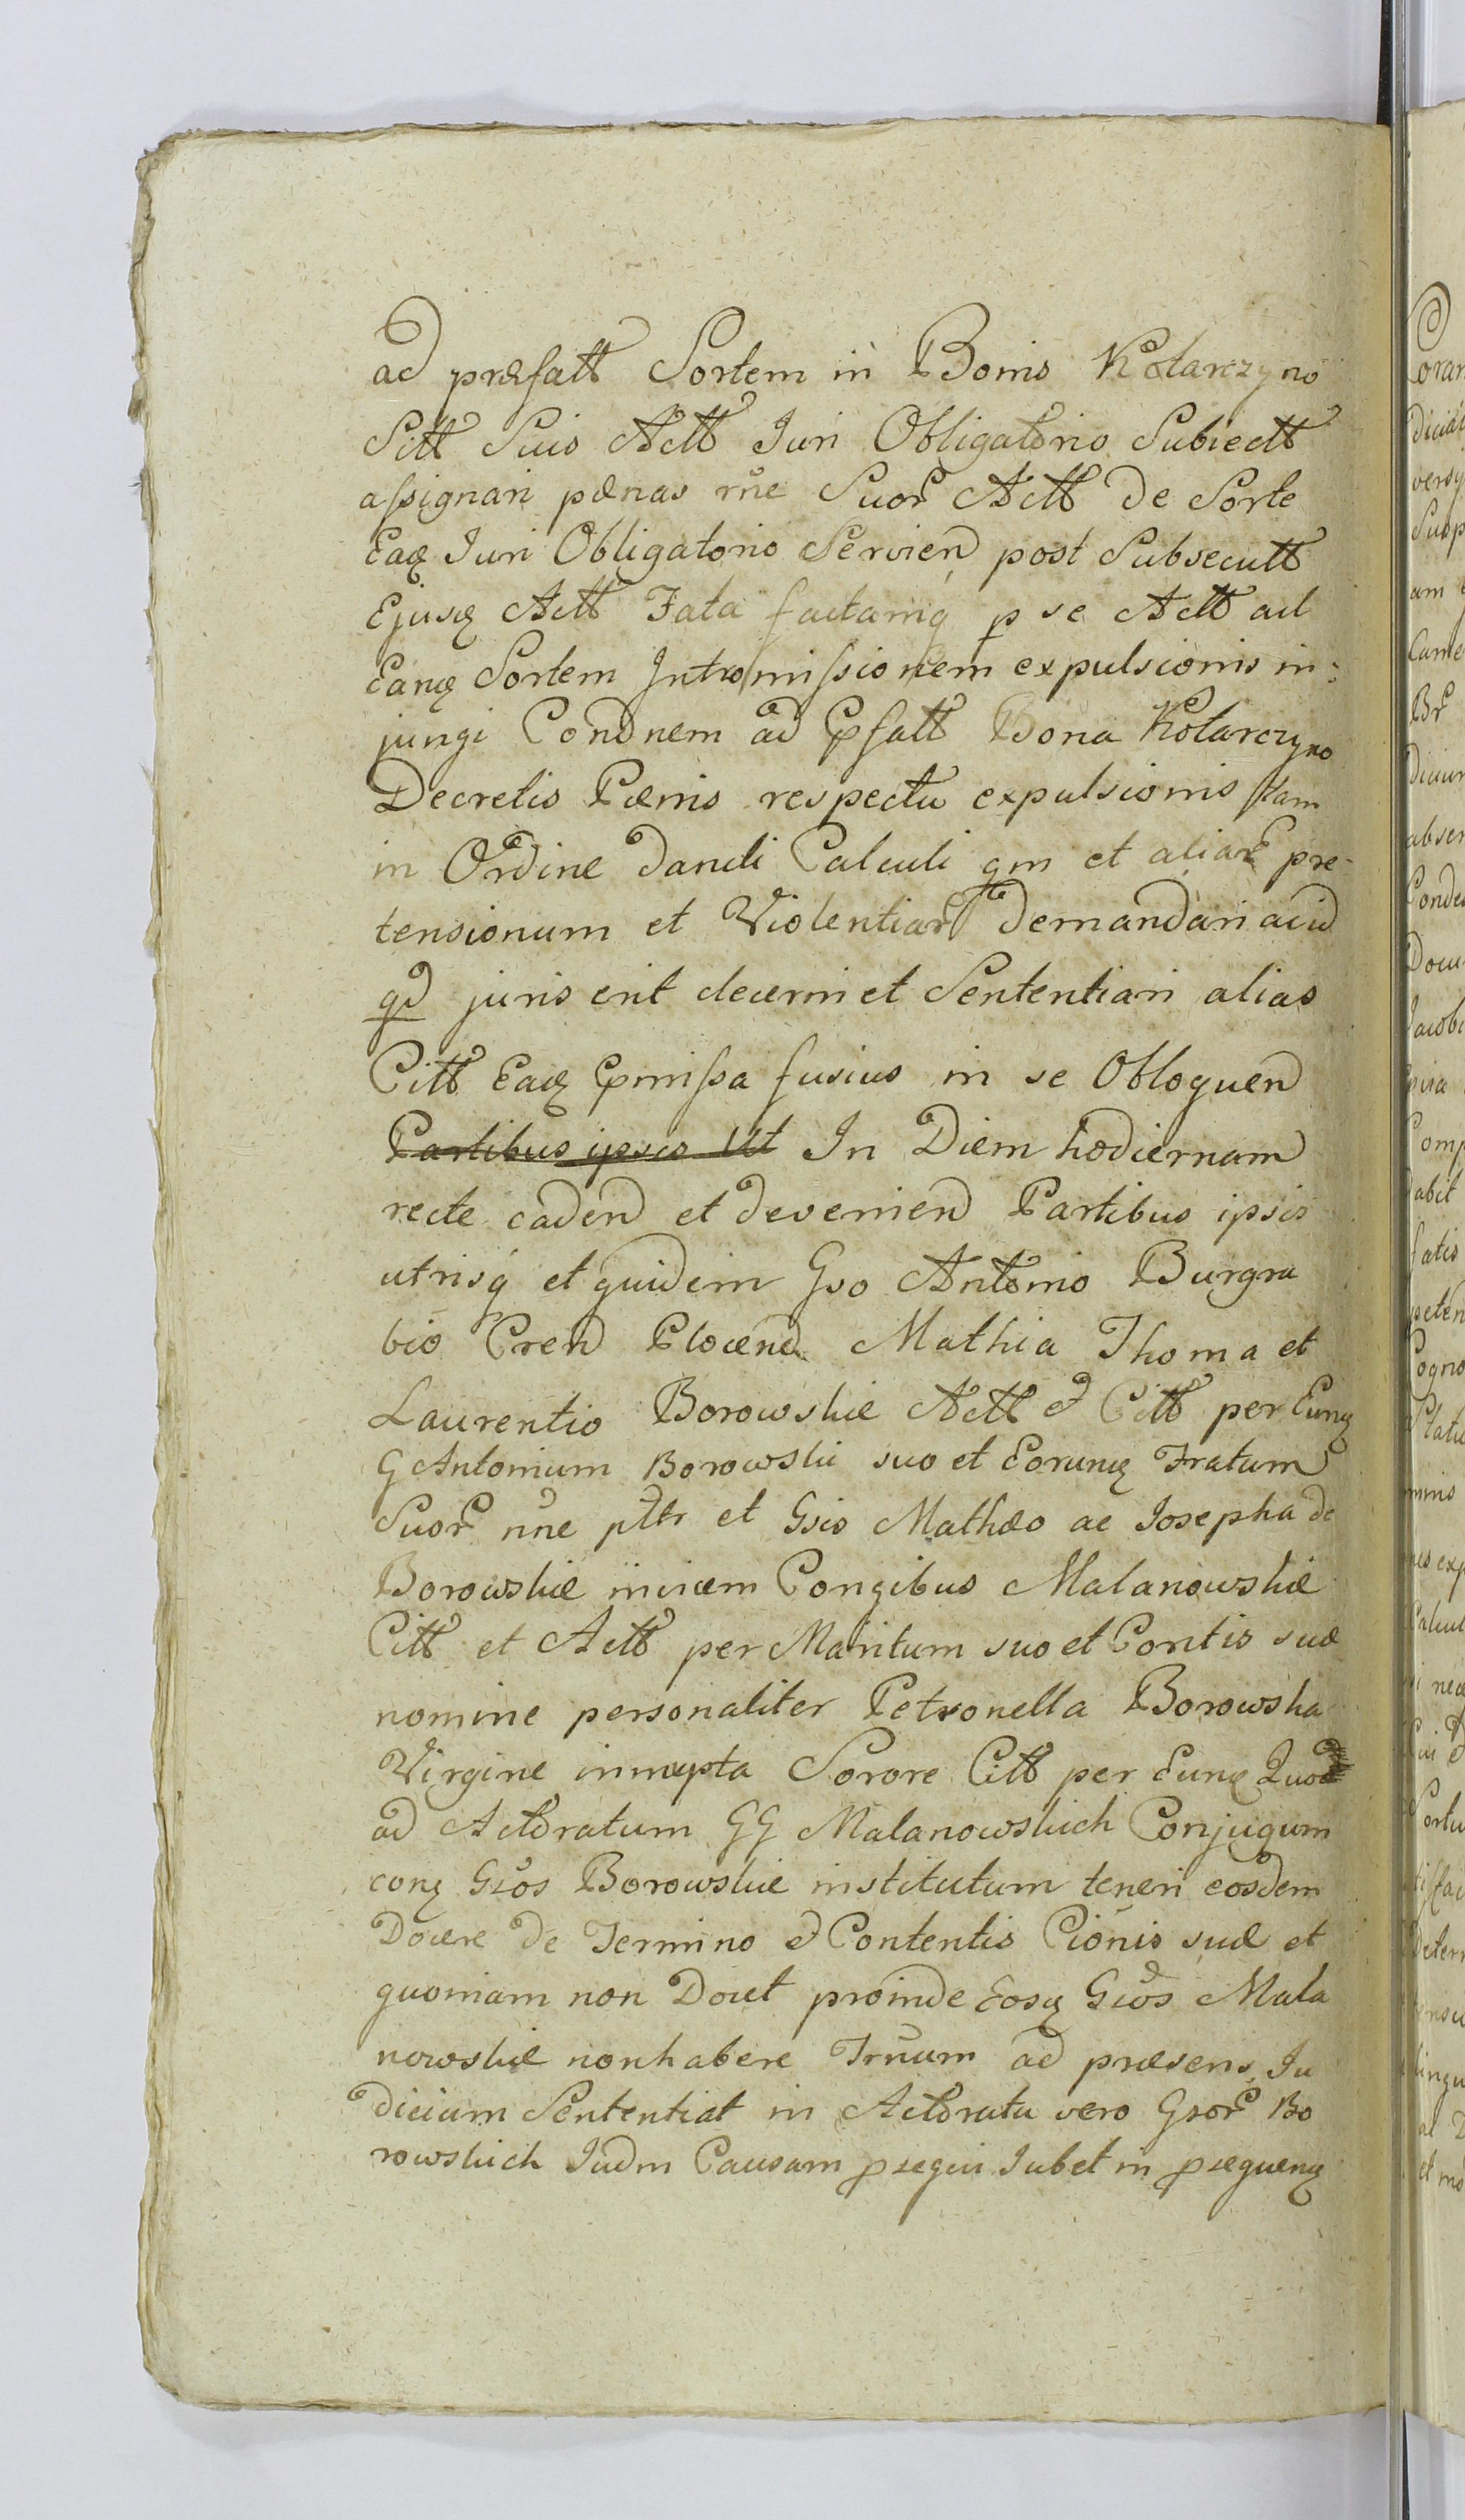 ad præfatt Sortem in Bonis Kotarczyno
Sitt Suis Actt Juri Obligatorio Subiectt
assignari pænas rñe Suor Actt de Sorte
Eadq Juri Obligatorio Servien post Subsecutt
Ejusq Actt Fata factamq p se Actt ad
Eanq Sortem Intromissionem expulsionis in:
jungi Condnem ad Pfatt Bona Kotarczyno
Decretis Pænis respectu expulsionis tam
in Ordine dandi Calculi qm et aliar præ-
tensionum et Violentiar demandari ac id
qd juris erit decerni et Sententiari alias
Citt Eaq Pmissa fusius in se Obloquen
Partibus ipsis Ut In Diem hodiernam
recte caden et devenien Partibus ipsis
utrisq et quidem Gso Antonio Burgra
bio Cren Plocen Mathia Thoma et
Laurentio Borowskie Actt et Citt per Eunq
G Antonium Borowski suo et Eorunq Fratum
Suor nñe pttr et Gsis Mathæo ac Josepha de
Borowskie invicem Congibus Malanowskie
Citt et Actt per Maritum suo et Contis suæ
nomine personaliter Petronella Borowska
Virgine innupta Sorore Citt per Eunq Quod
ad Actoratum GG Malanowskich Conjugum
conq Gsos Borowskie institutum teneri eosdem
Docere de Termino et Contentis Ciõnis suæ et
quoniam non Docet proinde Eosq Gsos Mala
nowskie non habere Trnum ad præsens Ju
dicium Sententiat in Actoratu vero Gsor Bo
rowskich Judm Causam psequi Jubet in psequenq